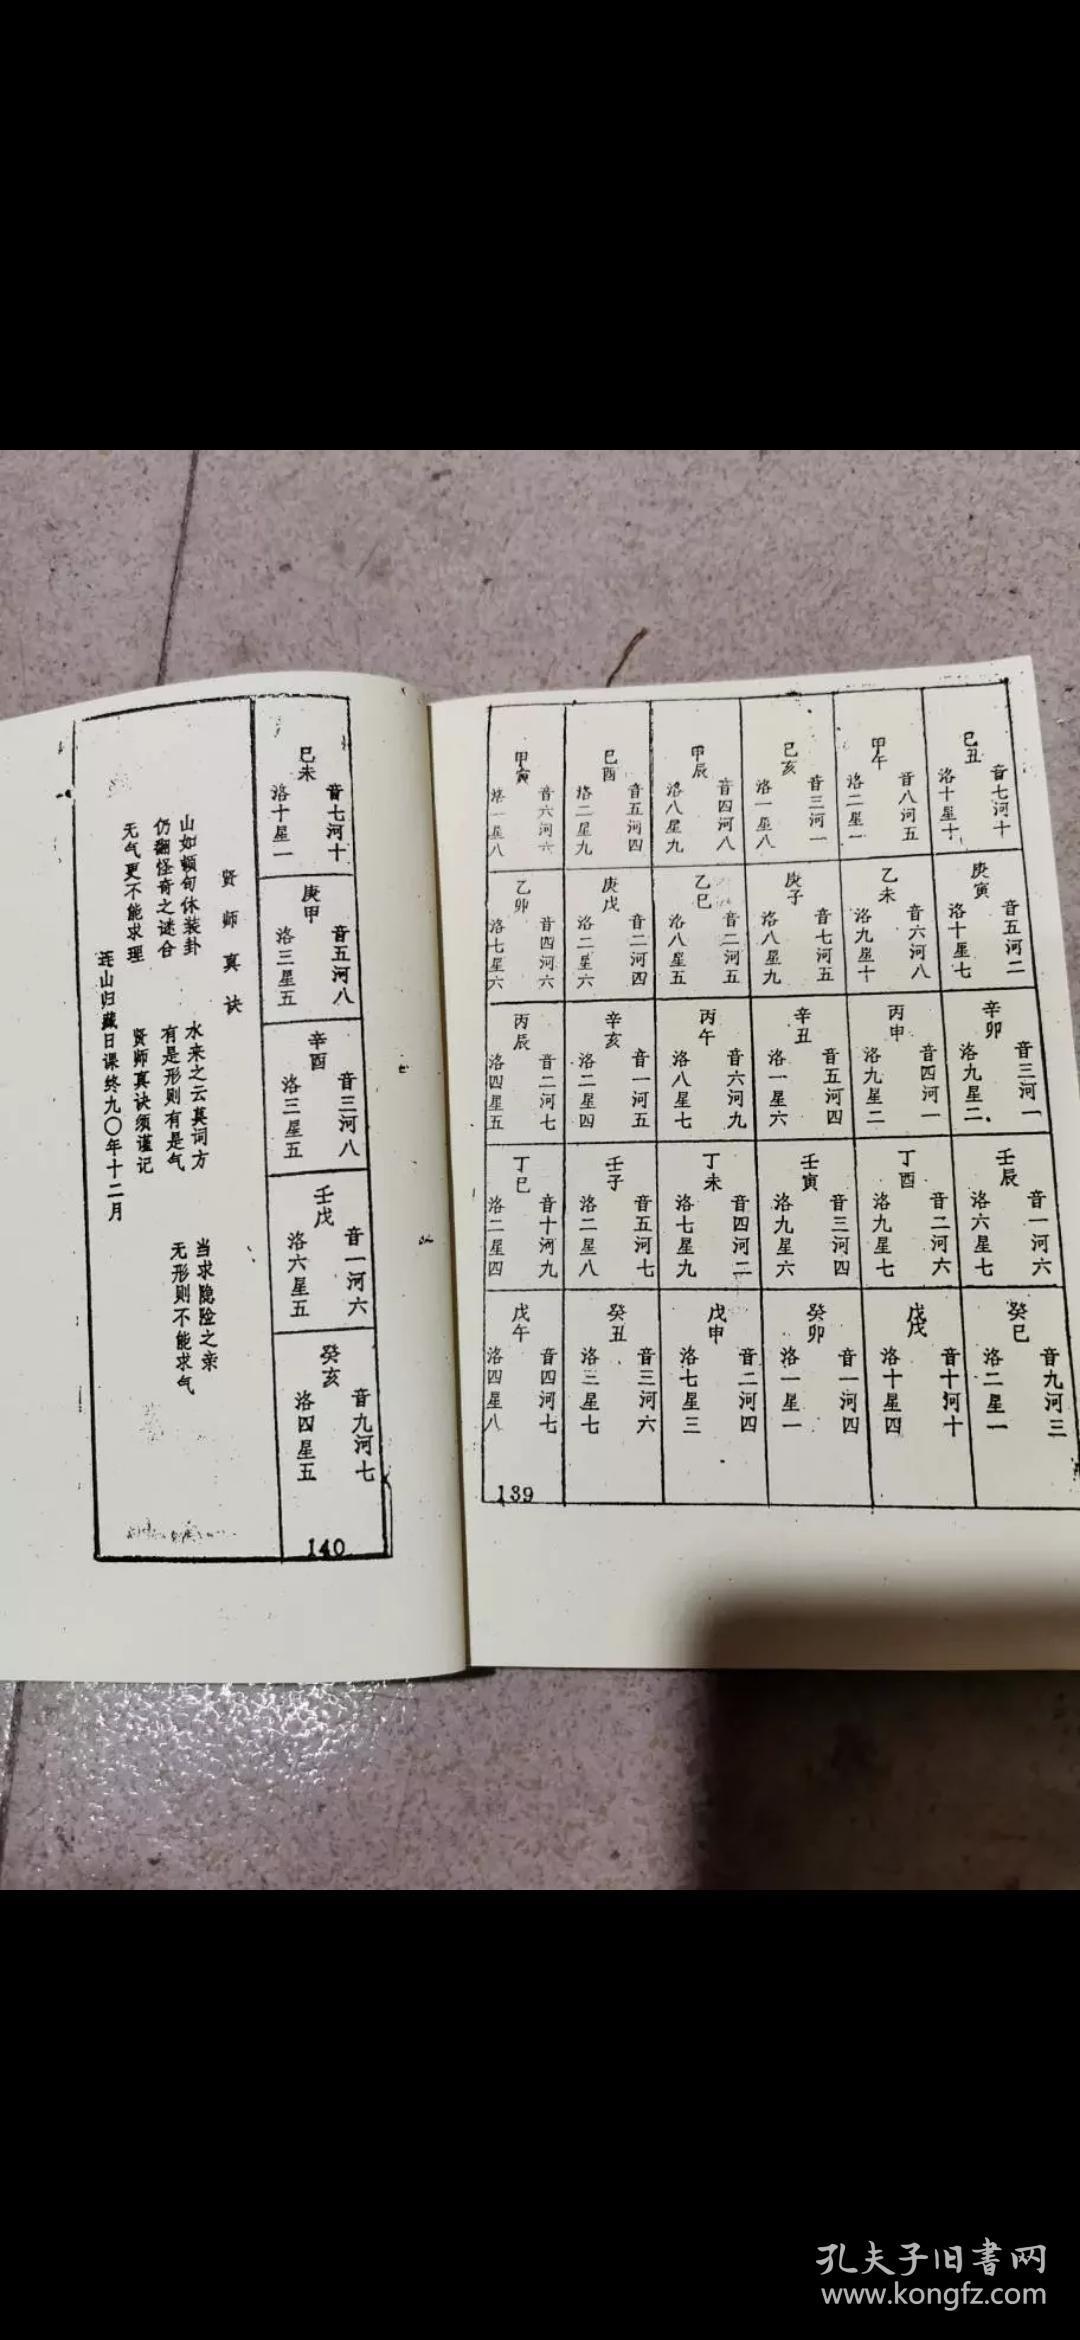 己丑
音七河十
洛十星十
庚寅
音五河二
洛十星七
辛卯
音三河一
洛九星二
壬辰
音一河六
洛六星七
癸巳
音九河三
洛二星一
甲午
音八河五
洛二星一
乙未
音六河八
洛九星十
丙申
音四河一
洛九星二
丁酉
音二河六
洛九星七
戊戌
音十河十
洛十星四
己亥
音三河一
洛一星八
庚子
音七河五
洛八星九
辛丑
音五河四
洛一星六
壬寅
音三河四
洛九星六
癸卯
音一河四
洛一星一
甲辰
音四河八
洛八星九
乙巳
音二河五
洛八星五
丙午
音六河九
洛八星七
丁未
音四河二
洛七星九
戊申
音二河四
洛七星三
己酉
音五河四
洛二星九
庚戌
音二河四
洛二星六
辛亥
音一河五
洛二星四
壬子
音五河七
洛二星八
癸丑
音三河六
洛三星七
甲寅
音六河六
洛一星八
乙卯
音四河六
洛七星六
丙辰
音二河七
洛四星五
丁巳
音十河九
洛二星四
戊午
音四河七
洛四星八
139
己未
音七河十
洛十星一
庚甲
音五河八
洛三星五
辛酉
音三河八
洛三星五
壬戌
音一河六
洛六星五
癸亥
音九河七
洛四星五
140
贤师真诀
山如顿旬休装卦 水来之云莫词方 当求隐险之亲
仍翻怪奇之谜合 有是形则有是气 无形则不能求气
无气更不能求理 贤师真诀须谨记
连山归藏日课终九〇年十二月
孔夫子旧书网
www.kongfz.com